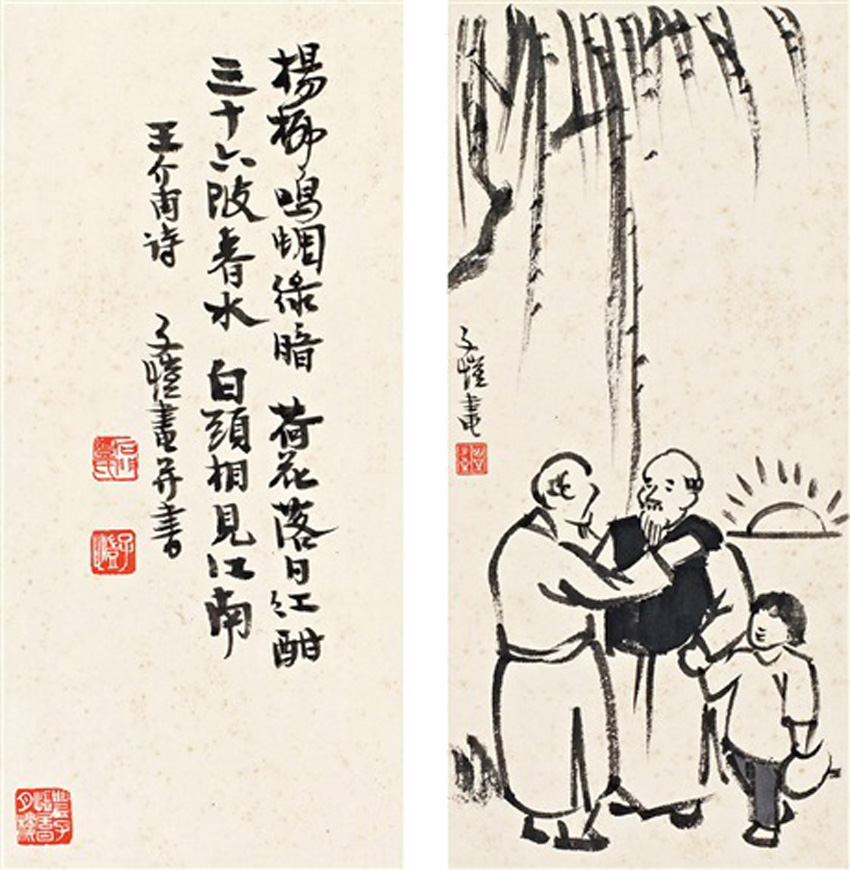 楊柳鳴蜩綠暗 荷花落日紅酣
三十六陂春水 白頭相見江南
王介甫詩 子愷畫并書
子愷畫